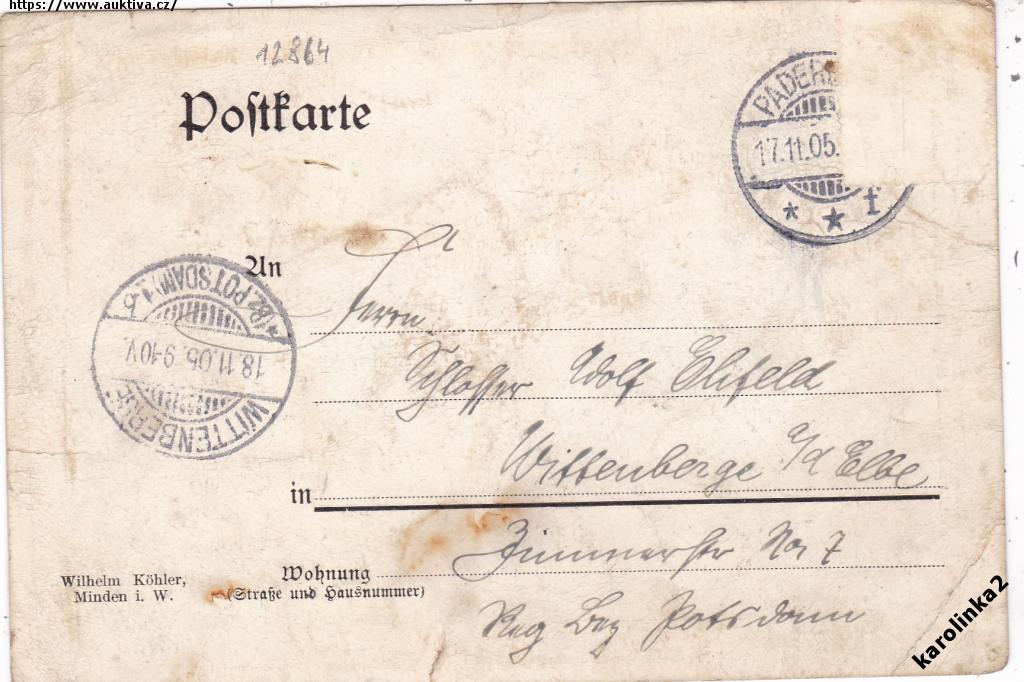 https://www.auktiva.cz/
12864
Postkarte
PADER
17.11.05.
* * f
An
Herrn
(BZ. POTSDAM) 1.b
18.11.05.9-10V.
WITTENBERGE
Schlosser Adolf Ehlfeld
in Wittenberge a/d Elbe
Wohnung Zimmerstr No 7
(Straße und Hausnummer)
Reg Bez Potsdam
Wilhelm Köhler,
Minden i. W.
karolinka2